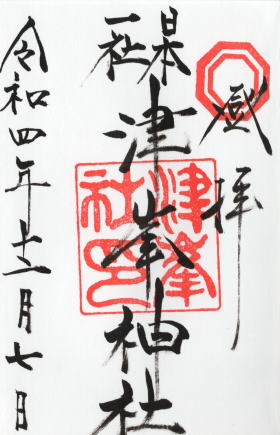 拝
日本
一社
津峯神社
令和四年十二月七日
津峯
社印